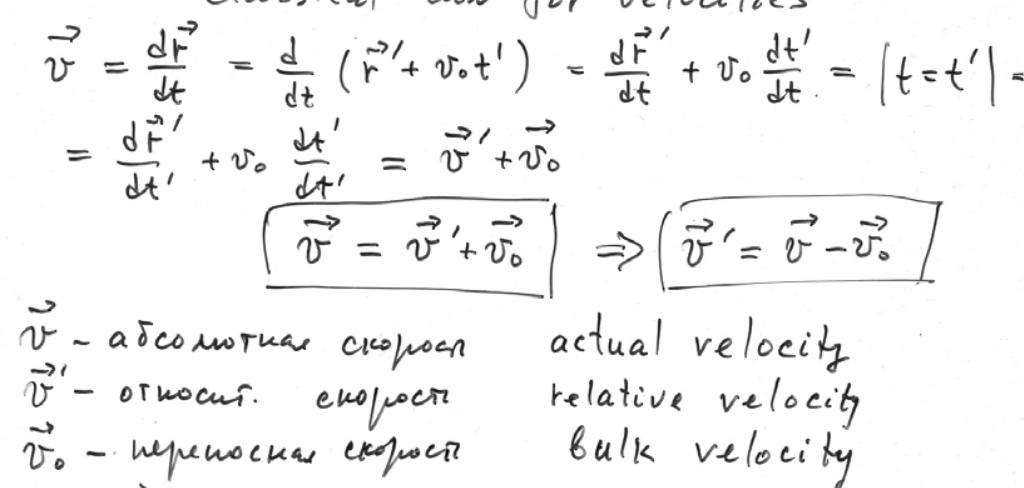 for velocities
v⃗ = dr⃗/dt = d/dt (r⃗′ + v₀t′) = dr⃗′/dt + v₀ dt′/dt = |t=t′| =
= dr⃗′/dt′ + v₀ dt′/dt′ = v⃗′ + v⃗₀
v⃗ = v⃗′ + v⃗₀ ⇒ v⃗′ = v⃗ − v⃗₀
v⃗ - абсолютная скорость actual velocity
v⃗′ - относит. скорость relative velocity
v⃗₀ - переносная скорость bulk velocity